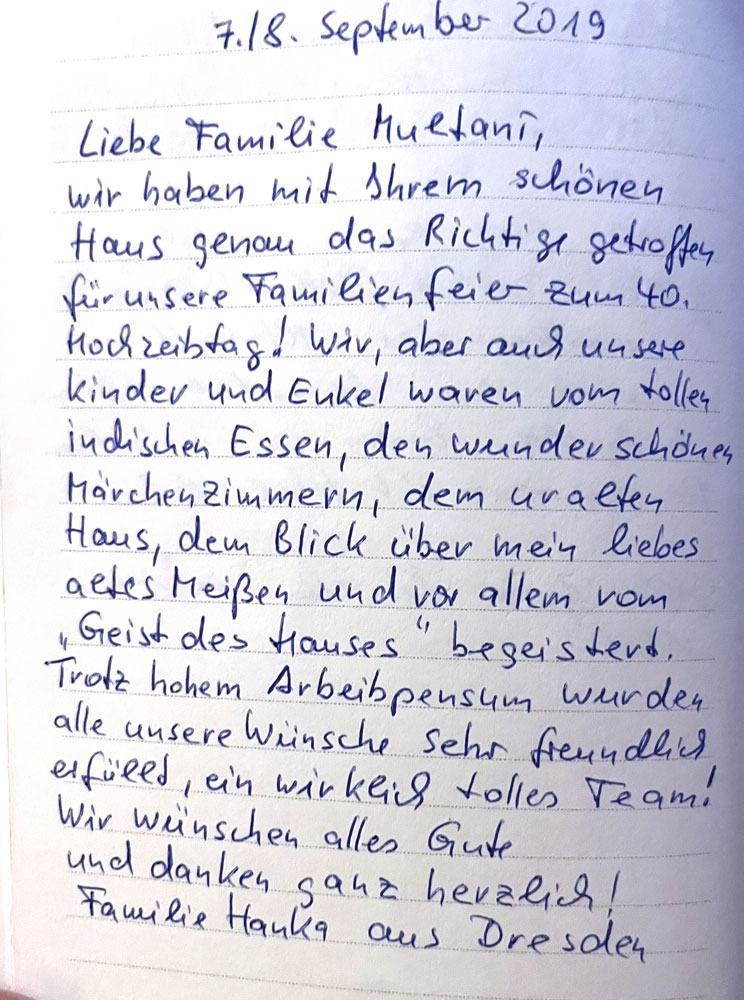 7./8. September 2019
Liebe Familie Multani,
wir haben mit Ihrem schönen
Haus genau das Richtige getroffen
für unsere Familienfeier zum 40.
Hochzeitstag! Wir, aber auch unsere
Kinder und Enkel waren vom tollen
indischen Essen, den wunderschönen
Märchenzimmern, dem uralten
Haus, dem Blick über mein liebes
altes Meißen und vor allem vom
„Geist des Hauses“ begeistert.
Trotz hohem Arbeitspensum wurden
alle unsere Wünsche sehr freundlich
erfüllt, ein wirklich tolles Team!
Wir wünschen alles Gute
und danken ganz herzlich!
Familie Hanka aus Dresden